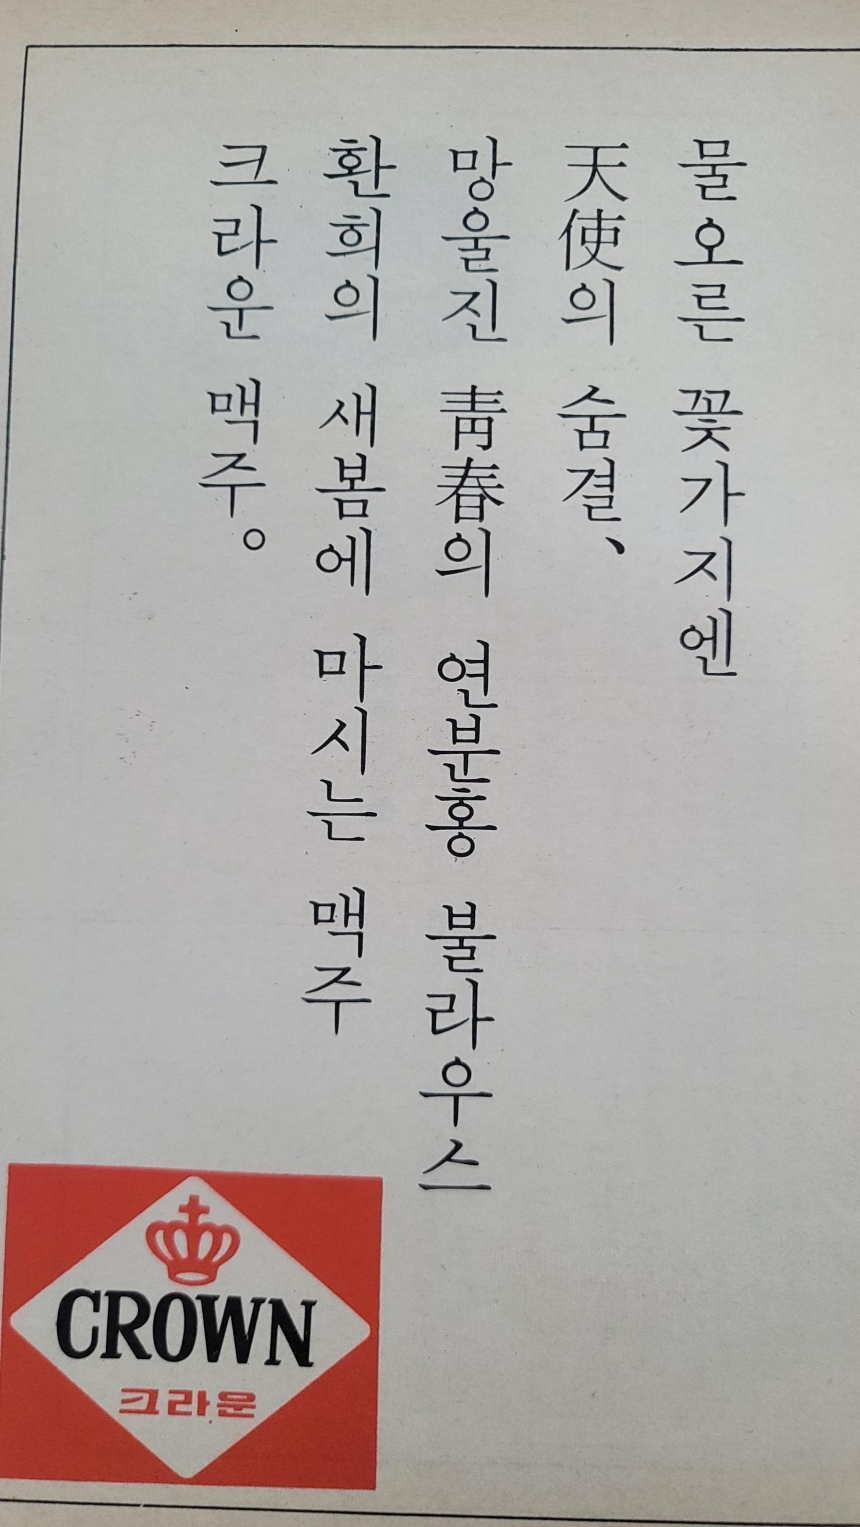 물오른 꽃가지엔
天使의 숨결、
망울진 靑春의 연분홍 불라우스
환희의 새봄에 마시는 맥주
크라운 맥주。
CROWN
크라운